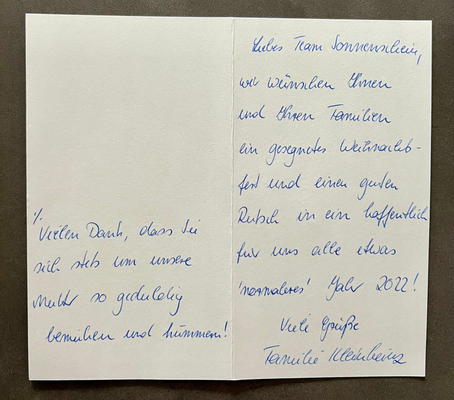 Liebes Team Sonnenschein,
wir wünschen Ihnen
und Ihren Familien
ein gesegnetes Weihnachts-
fest und einen guten
Rutsch in ein hoffentlich
für uns alle etwas
'normaleres' Jahr 2022!
Viele Grüße
Familie Kleinheinz
%.
Vielen Dank, dass Sie
sich stets um unsere
Mutter so geduldig
bemühen und kümmern!